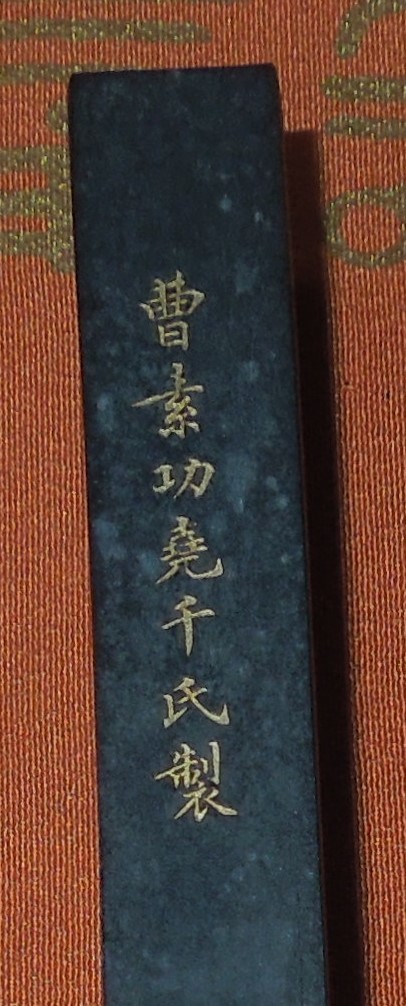 曹素功堯千氏製